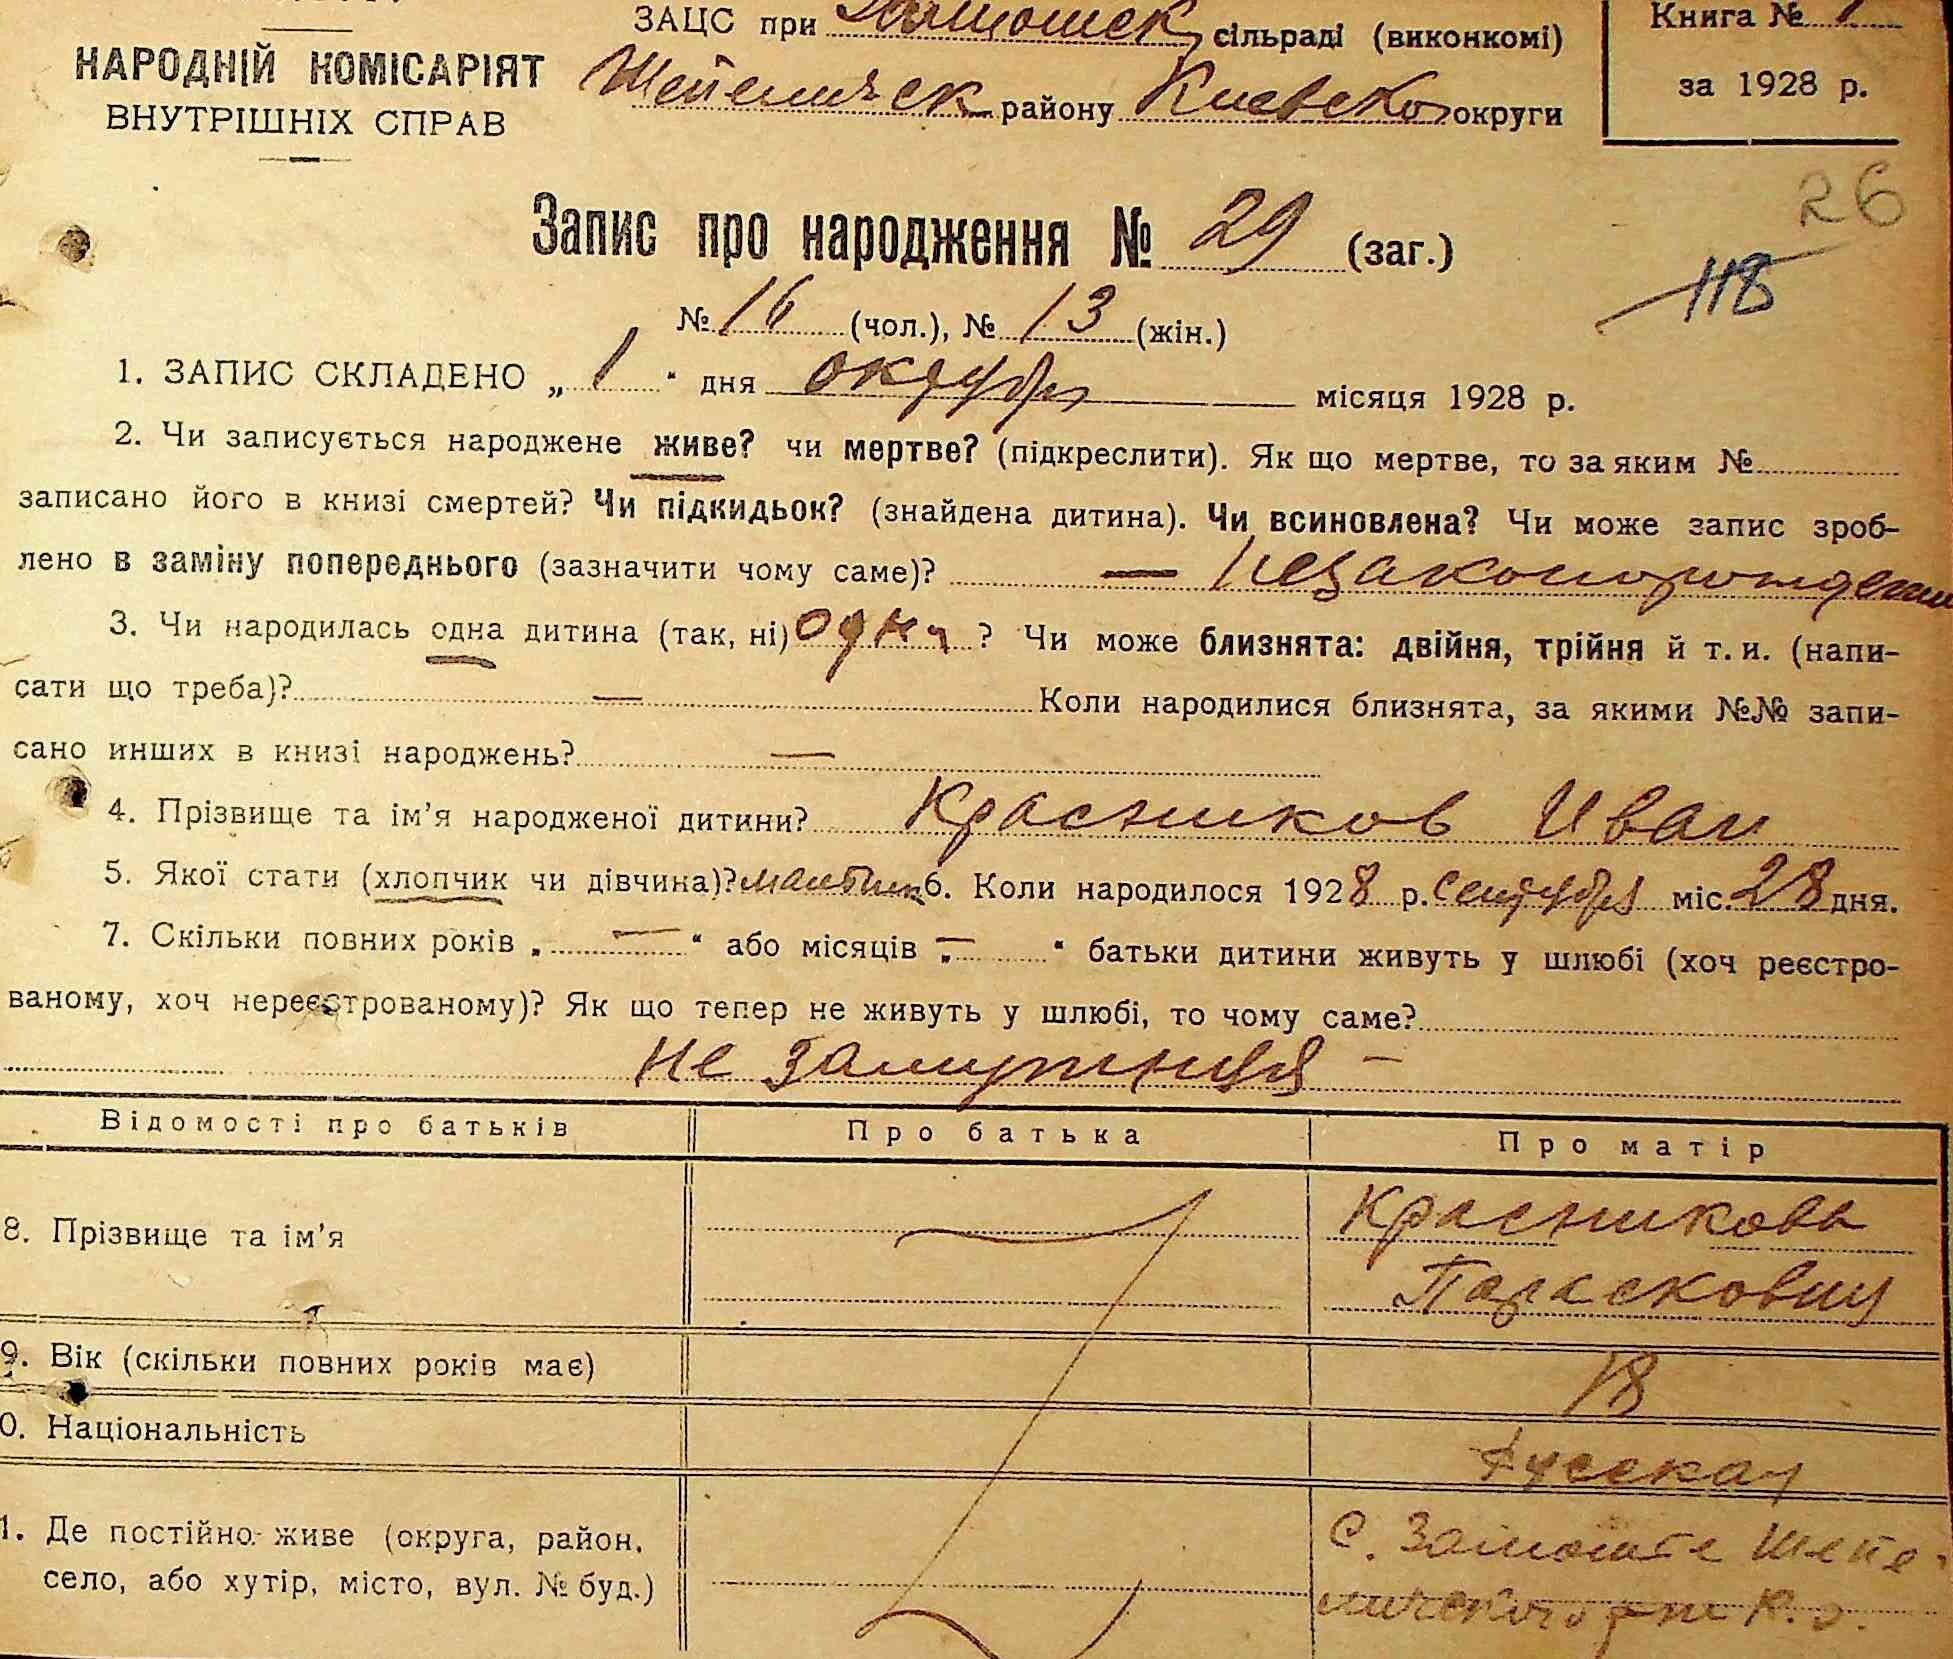 ЗАЦС при Замошек сільраді (виконкомі)
Книга №
НАРОДНІЙ КОМІСАРІЯТ
ВНУТРІШНІХ СПРАВ
Шепеличск району Киевской округи
за 1928 р.
26
Запис про народження № 29 (заг.)
118
№ 16 (чол.), № 13 (жін.)
1. ЗАПИС СКЛАДЕНО „ 1 “ дня октября місяця 1928 р.
2. Чи записується народжене живе? чи мертве? (підкреслити). Як що мертве, то за яким №
записано його в книзі смертей? Чи підкидьок? (знайдена дитина). Чи всиновлена? Чи може запис зроб-
лено в заміну попереднього (зазначити чому саме)? — Незаконорожден
3. Чи народилась одна дитина (так, ні) одна ? Чи може близнята: двійня, трійня й т. и. (напи-
сати що треба)? — Коли народилися близнята, за якими №№ запи-
сано инших в книзі народжень? —
4. Прізвище та ім’я народженої дитини? Красников Иван
5. Якої стати (хлопчик чи дівчина)? мальчик 6. Коли народилося 1928 р. сентября міс. 28 дня.
7. Скільки повних років „ — “ або місяців „ — “ батьки дитини живуть у шлюбі (хоч реєстро-
ваному, хоч нереєстрованому)? Як що тепер не живуть у шлюбі, то чому саме?
не замужняя —
Відомості про батьків Про батька Про матір
8. Прізвище та ім’я Красникова
Парасковия
9. Вік (скільки повних років має) 18
0. Національність русская
1. Де постійно живе (округа, район, с. Замошье Шепе-
село, або хутір, місто, вул. № буд.) личского р-на К. о.